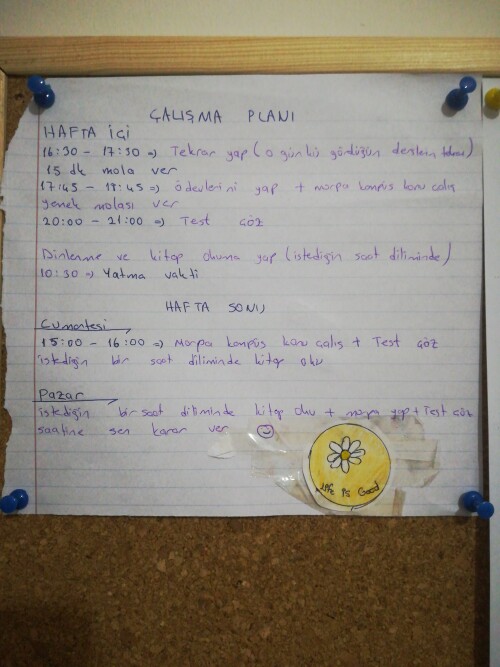 ÇALIŞMA PLANI
HAFTA İÇİ
16:30 - 17:30 => Tekrar yap (o günkü gördüğün derslerin tekrarı)
15 dk mola ver
17:45 - 18:45 => Ödevlerini yap + morpa kampüs konu çalış
yemek molası ver
20:00 - 21:00 => Test çöz
Dinlenme ve kitap okuma yap (istediğin saat diliminde)
10:30 => Yatma vakti
HAFTA SONU
Cumartesi
15:00 - 16:00 => Morpa kampüs konu çalış + Test çöz
istediğin bir saat diliminde kitap oku
Pazar
istediğin bir saat diliminde kitap oku + morpa yap + Test çöz
saatine sen karar ver
Life is Good